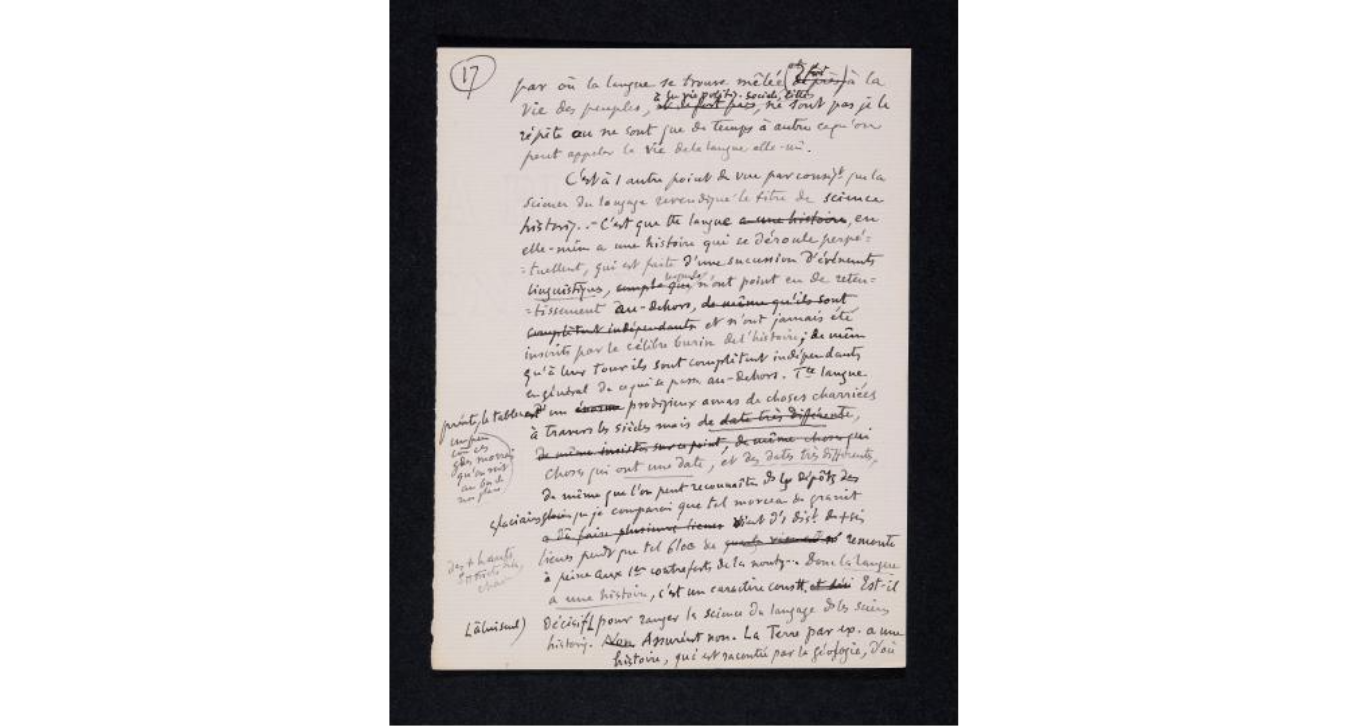 17
par où la langue se trouve mêlée (et de fort près) à la
vie des peuples, à sa vie politiq. sociale, ne sont pas je le
répète ou ne sont que de temps à autre ce qu'on
peut appeler la vie de la langue elle-mê.
C'est à l'autre point de vue par conséqt que la
science du langage revendique le titre de science
historiq. - C'est que tte langue a une histoire, en
elle-mêm a une histoire qui se déroule perpé=
=tuellent, qui est faite d'une succession d'événements
linguistiques, lesquels n'ont point eu de reten=
=tissement au-dehors, de même qu'ils sont
complètent indépendants et n'ont jamais été
inscrits par le célèbre burin de l'histoire; de mêm
qu'à leur tour ils sont complètent indépendants
en général de ce qui se passe au-dehors. Tte langue
présente, le tableau d'un énorme prodigieux amas de choses charriées
un peu
com ces
gdes moraines
qu'on voit
au bord de
nos glaciers
à travers les siècles mais de date très différente,
de même insister sur ce point, de même choses qui
choses qui ont une date, et des dates très différents,
de même que l'on peut reconnaître ds les dépôts des
glaciaires que je comparais que tel morceau de granit
a dû faire plusieurs lieues vient d'1 dist. de
lieues pendt que tel bloc de remonte
à peine aux 1ers contreforts de la Donc la langue
des + hauts
a une histoire, c'est un caractère constt. Est-il
(à lui seul) Décisif pour ranger la science du langage ds les scienc
historiq. Non Assurément non. La Terre par ex. a une
histoire, qui est racontée par la géologie, d'où